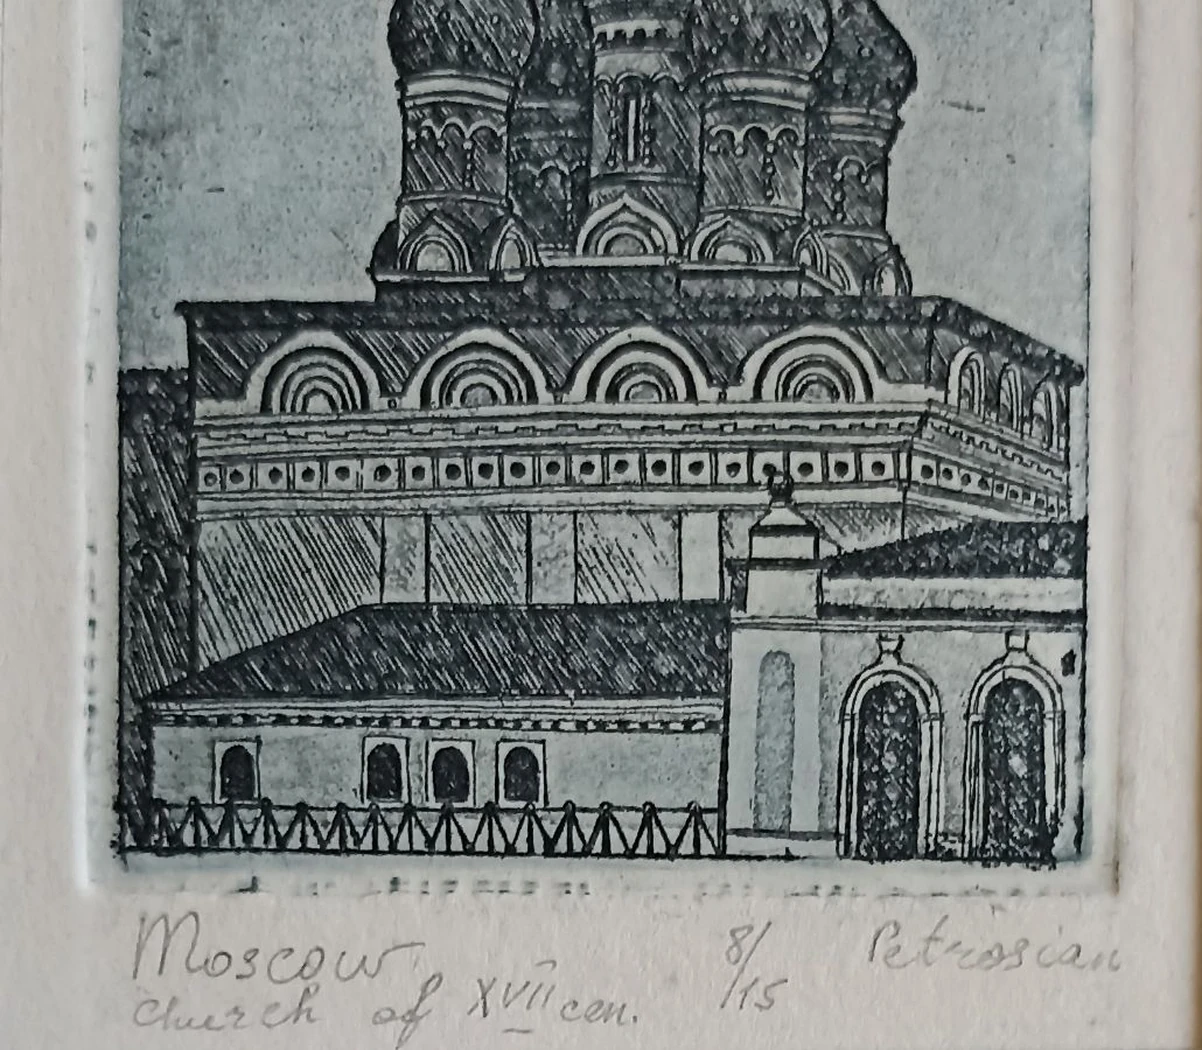 Moscow 8/15 Petrosian
church of XVII cen.